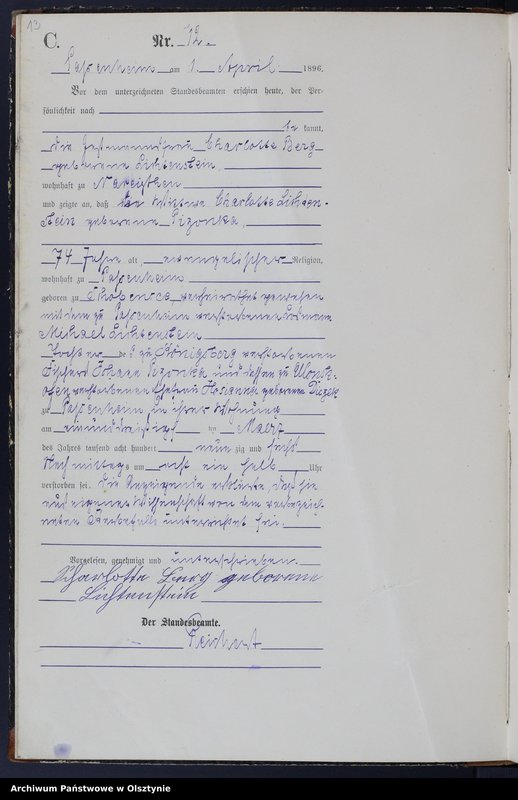 13
C.
Nr. 12.
Passenheim am 1. April 1896.
Vor dem unterzeichneten Standesbeamten erschien heute, der Per-
sönlichkeit nach
be kannt,
die Charlotte Berg
geborene Lichtenstein,
wohnhaft zu Nareythen
und zeigte an, daß die Wittwe Charlotte Lichten-
stein geborene Pizonka,
74 Jahre alt, evangelischer Religion,
wohnhaft zu Passenheim
geboren zu verheirathet gewesen
mit dem zu Passenheim verstorbenen
Michael Lichtenstein
Tochter des zu Königsberg verstorbenen
Johann Pizonka und dessen zu
verstorbenen Ehefrau geborenen
zu Passenheim in ihrer Wohnung
am einunddreißigsten März
des Jahres tausend acht hundert neun zig und sechs
Nach mittags um acht ein halb Uhr
verstorben sei. Die Anzeigende erklärte, daß sie
aus eigener Wissenschaft von dem verzeich-
neten Sterbefalle unterrichtet sei.
Vorgelesen, genehmigt und unterschrieben.
Charlotte Berg geborene
Lichtenstein
Der Standesbeamte.
Reichert
Archiwum Państwowe w Olsztynie